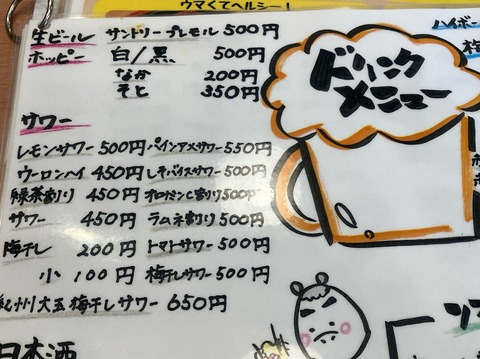 ウマくてヘルシー!
生ビール サントリープレモル 500円
ホッピー 白/黒 500円
なか 200円
そと 350円
ドリンク
メニュー
サワー
レモンサワー 500円 パインアメサワー 550円
ウーロンハイ 450円 しそバイスサワー 500円
緑茶割り 450円 オロナミンC割り 500円
サワー 450円 ラムネ割り 500円
梅干し 200円 トマトサワー 500円
小 100円 梅干しサワー 500円
紀州大玉梅干しサワー 650円
日本酒
ハイボー